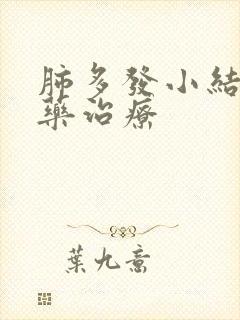 肺多發小結
藥治療
葉九喬